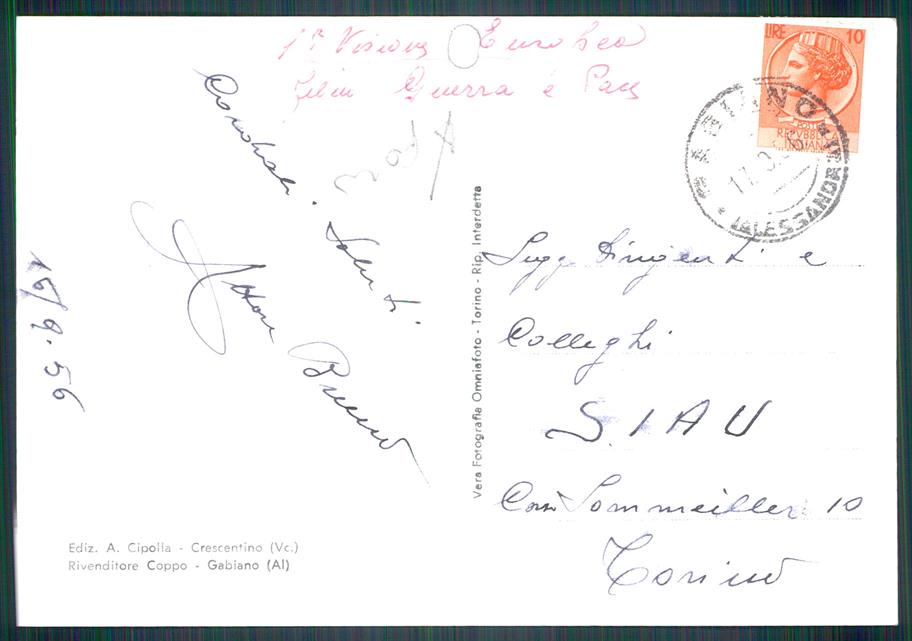 1ª Visione Europea
Film Guerra e Pace
Cordiali
Saluti
Bruno
16/9-56
Ediz. A. Cipolla - Crescentino (Vc.)
Rivenditore Coppo - Gabiano (Al)
Vera Fotografia Omniafoto - Torino - Rip. Interdetta
LIRE 10
POSTE
REPVBBLICA
ITALIANA
(ALESSANDRIA)
Dirigenti e
Colleghi
S.I.A.U
Corso Sommeiller 10
Torino